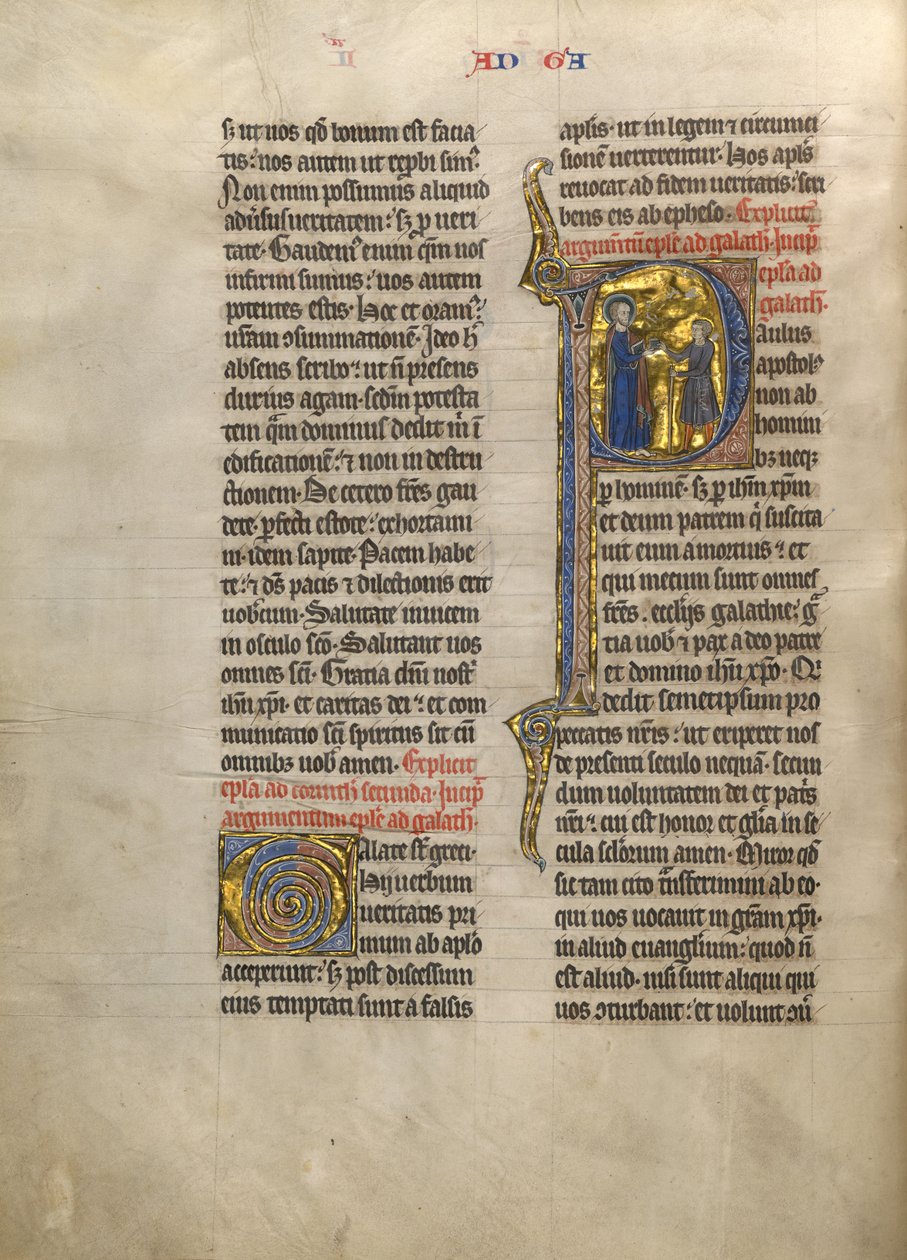 AD GA
sʒ ut uos qd̄ bonum est facia
tis: nos autem ut rep̄bi simꝰ.
Non enim possumus aliquid
adũsus ueritatem: sʒ ꝓ ueri
tate. Gaudemꝰ enim qm̄ nos
infirmi sumus: uos autem
potentes estis. Hoc et oramꝰ
uram ↄsummationē. Ideo h̄
absens scribo: ut n̄ presens
durius agam. sedm̄ potesta
tem quam dominus dedit m̄ ī
edificationē: ⁊ non in destru
ctionem. De cetero fr̄es gau
dete. ꝑfecti estote: exhortami
ni. idem sapite. Pacem habe
te: ⁊ ds̄ pacis ⁊ dilectionis erit
uobiscum. Salutate inuicem
in osculo sc̄o. Salutant uos
omnes sc̄i. Gratia dn̄i nostͥ
ih̄u xp̄i. et caritas dei: et com
municatio sc̄i spiritus sit cū
omnibꝫ uob̄ amen. Explicit
epl̄a ad corinth̄ secunda. Incip̄
argumentum epl̄e ad galath̄.
Galate st̄ greci.
Hij uerbum
ueritatis pri
mum ab apl̄o
acceperunt: sʒ post discessum
eius temptati sunt a falsis
apl̄is. ut in legem ⁊ circumci
sionē uerterentur. Hos apl̄s
reuocat ad fidem ueritatis: scri
bens eis ab epheso. Explicit
argum̄tū epl̄e ad galath̄. Incip̄
epl̄a ad
galath̄.
Paulus
apostolꝰ
non ab
homini
bꝫ neqꝫ
ꝑ hominē. sʒ ꝑ ih̄m xp̄m
et deum patrem qͥ suscita
uit eum a mortuis: et
qui mecum sunt omnes
fr̄es. eccl̄ijs galathie: gͣ
tia uob̄ ⁊ pax a deo patre
et domino ih̄u xp̄o. Qͥ
dedit semetipsum pro
peccatis nr̄is: ut eriperet nos
de presenti seculo nequā. secun
dum uoluntatem dei et patͥs
nr̄i: cui est honor et glīa in se
cula sclorum amen. Miror qd̄
sic tam cito tͣnsferimini ab eo.
qui uos uocauit in gr̄am xp̄i.
in aliud euanglīum: quod n̄
est aliud. nisi sunt aliqui qui
uos ↄturbant: et uolunt ↄũ